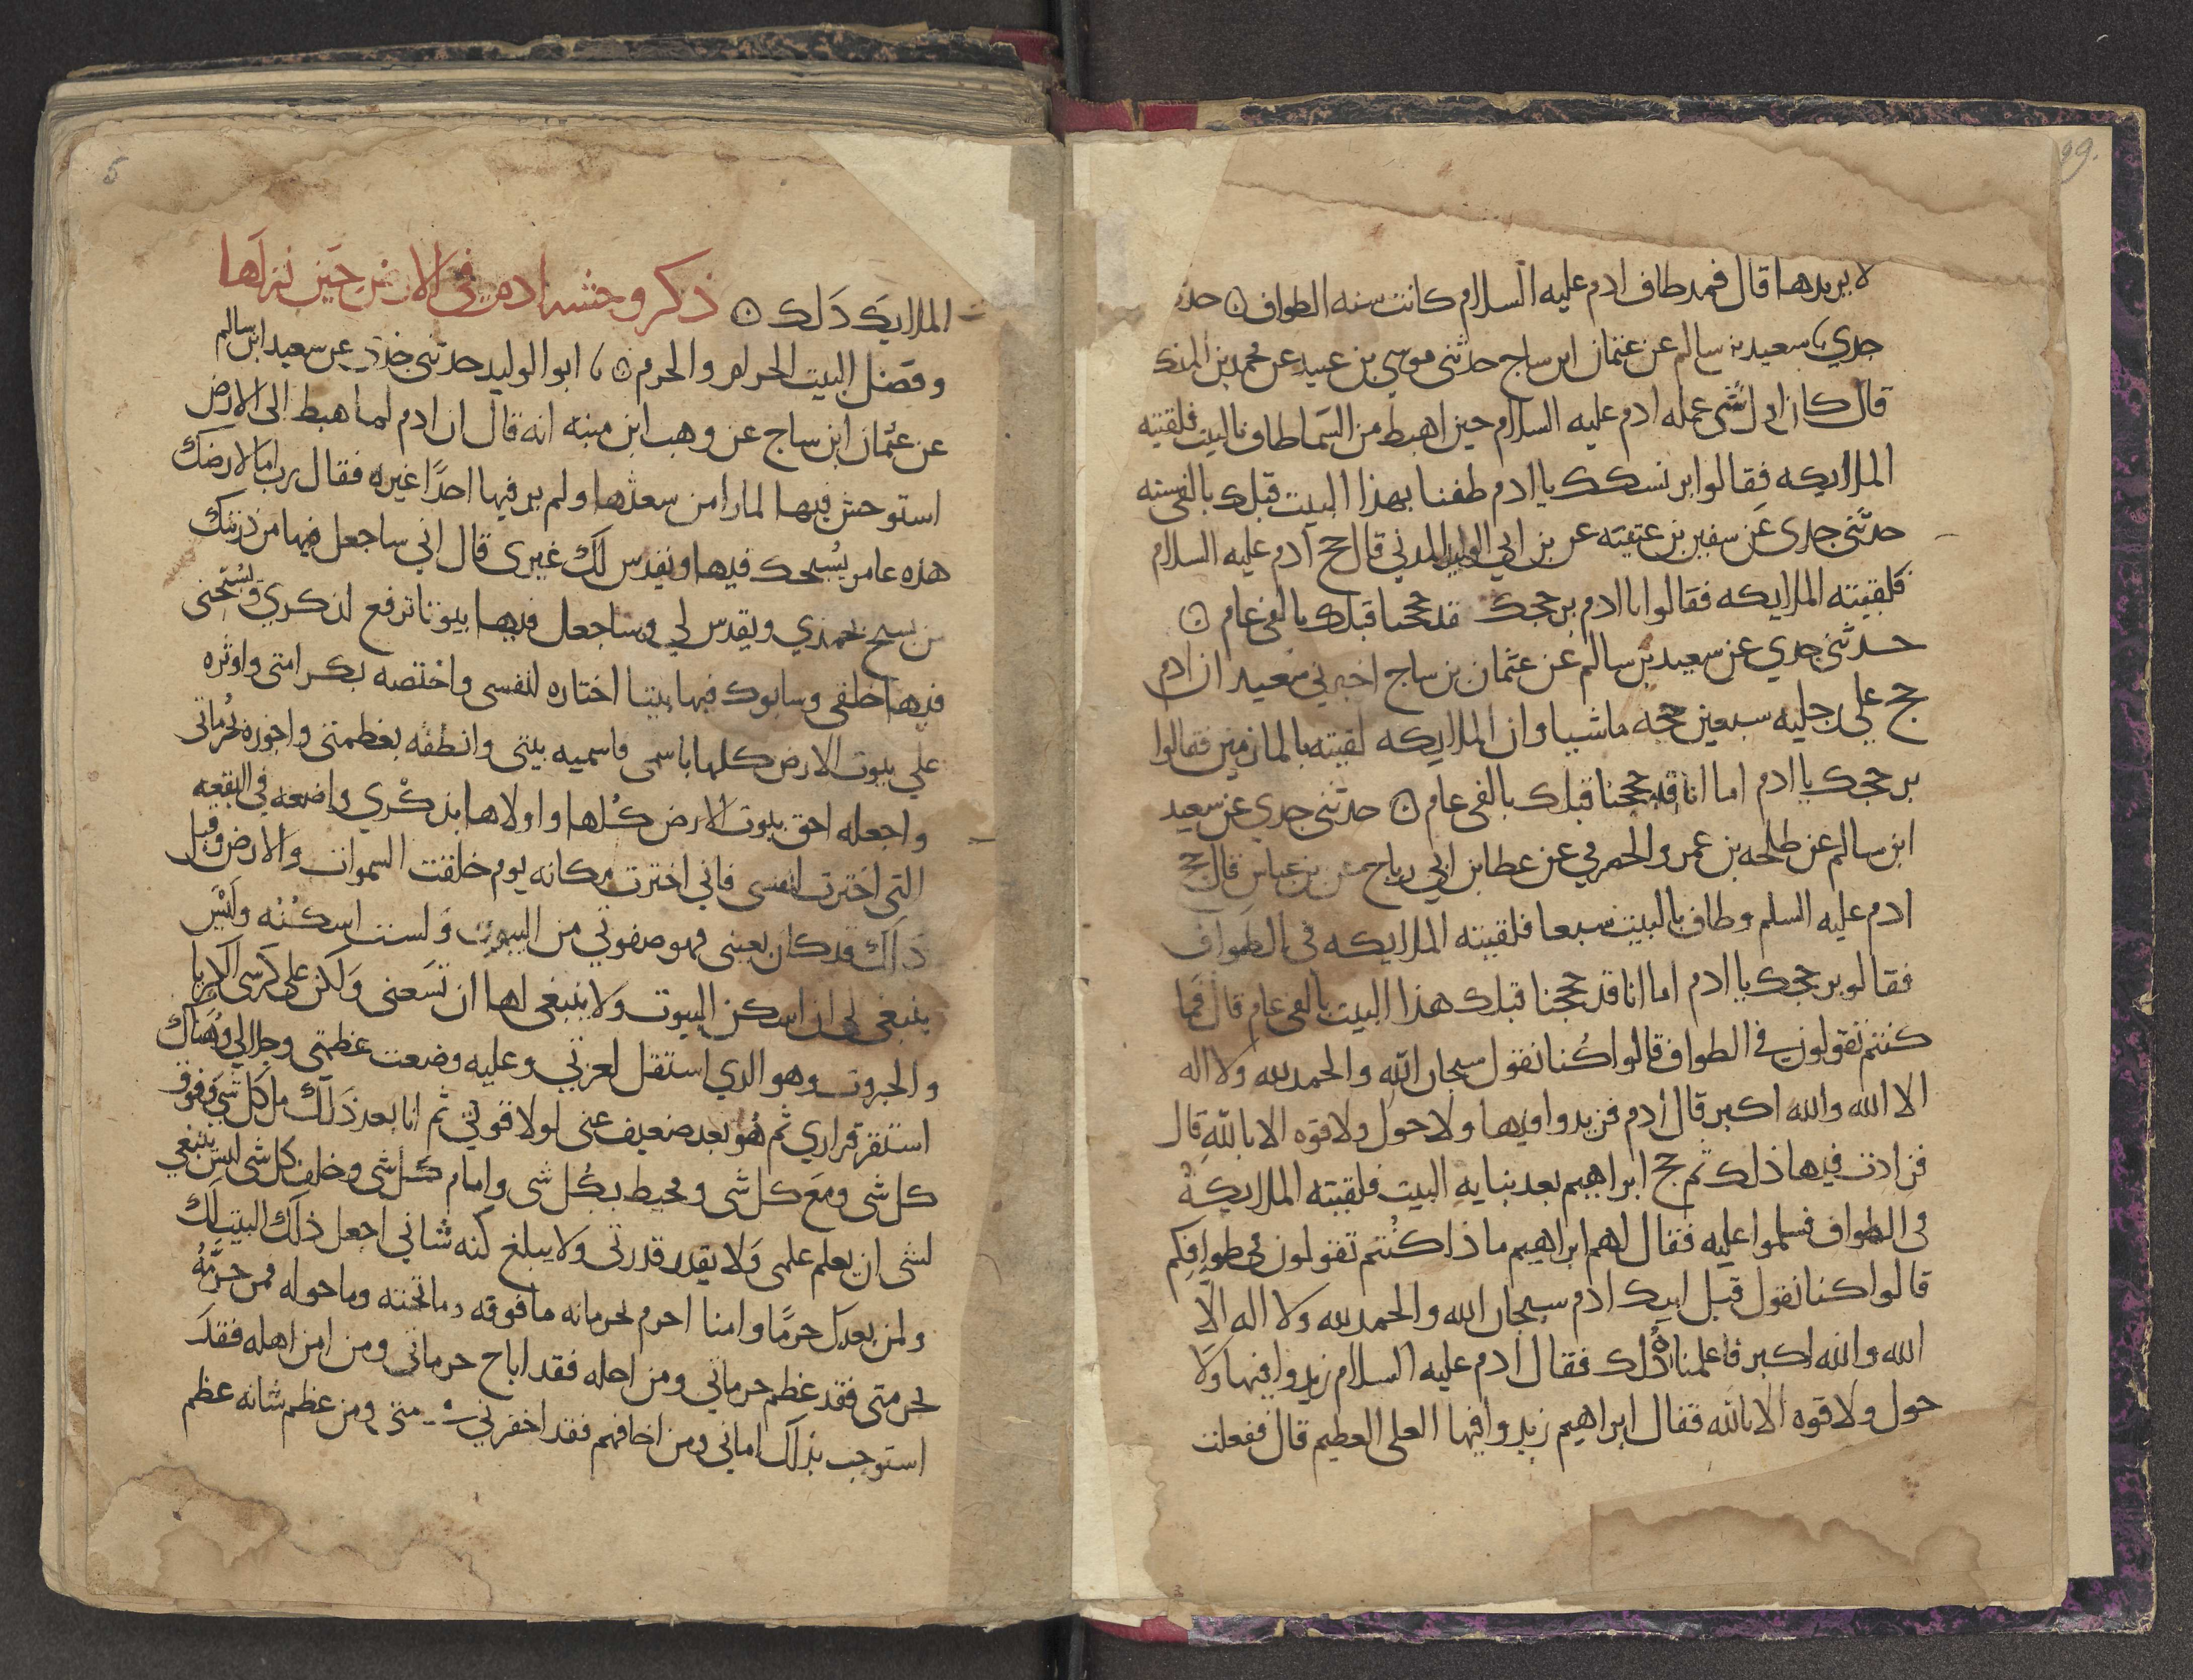 99.
لا يريدها قال فمد طاف ادم عليه السلام كانت سنه الطواف ۞ حد
جدي سعيد بن سالم عن عثمان ابن ساج حدثني موسي بن عبيد عن محمد بن المنك
قال كان اول شي عمله ادم عليه السلام حين اهبط من السما طاف بالبيت فلقيته
الملايكه فقالوا بر نسكك يا ادم طفنا بهذا البيت قبلك بالفي سنه
حدثني جدي عن سفين بن عيينه عن بن ابي الوليد المدني قال حج آدم عليه السلام
فلقيته الملايكه فقالوا يا ادم بر حجك قد حججنا قبلك بالفي عام ۞
حدثني جدي عن سعيد بن سالم عن عثمان بن ساج اخبرني سعيد ان ادم
حج علي رجليه سبعين حجه ماشيا وان الملايكه لقيته بالمازمين فقالوا
بر حجك يا ادم اما انا قد حججنا قبلك بالفي عام ۞ حدثني جدي عن سعيد
ابن سالم عن طلحه بن عمرو الحضرمي عن عطا بن ابي رباح عن بن عباس قال حج
ادم عليه السلم وطاف بالبيت سبعا فلقيته الملايكه في الطواف
فقالو بر حجك يا ادم اما انا قد حججنا قبلك هذا البيت بالفي عام قال فما
كنتم تقولون في الطواف قالوا كنا نقول سبحان الله والحمد لله ولا اله
الا الله والله اكبر قال ادم فزيدوا فيها ولا حول ولا قوه الا بالله قال
فزادت فيها ذلك ثم حج ابراهيم بعد بنايه البيت فلقيته الملايكة
في الطواف فسلموا عليه فقال لهم ابراهيم ماذا كنتم تقولون في طوافكم
قالوا كنا نقول قبل ابيك ادم سبحان الله والحمد لله ولا اله الا
الله والله اكبر فاعلمناه ذلك فقال ادم عليه السلام زيدوا فيها ولا
حول ولا قوه الا بالله فقال ابراهيم زيدوا فيها العلي العظيم قال ففعلت
5
الملايكة ذلك ۞ ذكر وحشه ادم في الارض حين نزلها
وفضل البيت الحرام والحرم ۞ ابو الوليد حدثني جدي عن سعيد ابن سالم
عن عثمان ابن ساج عن وهب ابن منبه انه قال ان ادم لما هبط الى الارض
استوحش فيها لما را من سعتها ولم ير فيها احدا غيره فقال رب اما لارضك
هذه عامر يسبحك فيها ويقدس لك غيري قال اني ساجعل فيها من ذريتك
من يسبح بحمدي ويقدس لي وساجعل فيها بيوتا ترفع لذكري ويسبحني
فيها خلقي وسابوك فيها بيتا اختاره لنفسي واختصه بكرامتي واوثره
علي بيوت الارض كلها باسمي فاسميه بيتي وانطقه بعظمتي واحوزه بحرماتي
واجعله احق بيوت الارض كلها واولاها بذكري واضعه في البقعه
التي اخترت لنفسي فاني اخترت مكانه يوم خلقت السموات والارض وقبل
ذلك قد كان بعيني فهو صفوتي من البيوت ولست اسكنه وليس
ينبغي لي ان اسكن البيوت ولا ينبغي لها ان تسعني ولكن علي كرسي الكبريا
والجبروت وهو الذي استقل لعزتي وعليه وضعت عظمتي وجلالي وهناك
استقر قراري ثم هو بعد ضعيف عني لولا قوتي ثم انا بعد ذلك مل كل شي وفوق
كل شي ومع كل شي ومحيط بكل شي وامام كل شي وخلف كل شي ليس ينبغي
لشي ان يعلم علمي ولا يقدر قدرتي ولا يبلغ كنه شاني اجعل ذلك البيت لك
ولمن بعدك حرما وامنا احرم بحرماته ما فوقه وما تحته وما حوله فمن حرمه
بحرمتي فقد عظم حرماتي ومن احله فقد اباح حرماتي ومن امن اهله فقد
استوجب بذلك اماني ومن اخافهم فقد اخفرني ومن عظم شانه عظم